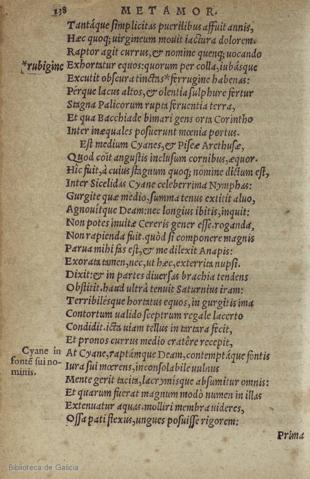 138 METAMOR.
Tantáque simplicitas puerilibus affuit annis,
Hæc quoq; uirgineum mouit iactura dolorem.
Raptor agit currus, & nomine quenq; uocando
*rubigine Exhortatur equos: quorum per colla, iubásque
Excutit obscura tinctas *ferrugine habenas:
Pérque lacus altos, & olentia sulphure fertur
Stagna Palicorum rupta feruentia terra,
Et qua Bacchiadæ bimari gens orta Corintho
Inter inæquales posuerunt mœnia portus.
Est medium Cyanes, & Pisææ Arethusæ,
Quod coit angustis inclusum cornibus, æquor.
Hic fuit, à cuius stagnum quoq; nomine dictum est,
Inter Sicelidas Cyane celeberrima Nymphas:
Gurgite quæ medio, summa tenus extitit aluo,
Agnouitque Deam: nec longius ibitis, inquit:
Non potes inuitæ Cereris gener esse. roganda,
Non rapienda fuit. quòd si componere magnis
Parua mihi fas est, & me dilexit Anapis:
Exorata tamen, nec, ut hæc, exterrita nupsi.
Dixit: & in partes diuersas brachia tendens
Obstitit. haud ultrà tenuit Saturnius iram:
Terribilésque hortatus equos, in gurgitis ima
Contortum ualido sceptrum regale lacerto
Condidit. icta uiam tellus in tartara fecit,
Et pronos currus medio cratêre recepit.
Cyane in At Cyane, raptámque Deam, contemptáque fontis
fontē sui no- Iura sui mœrens, inconsolabile uulnus
minis. Mente gerit tacita, lacrymisque absumitur omnis:
Et quarum fuerat magnum modò numen in illas
Extenuatur aquas. molliri membra uideres,
Ossa pati flexus, ungues posuisse rigorem:
Prima
Biblioteca de Galicia